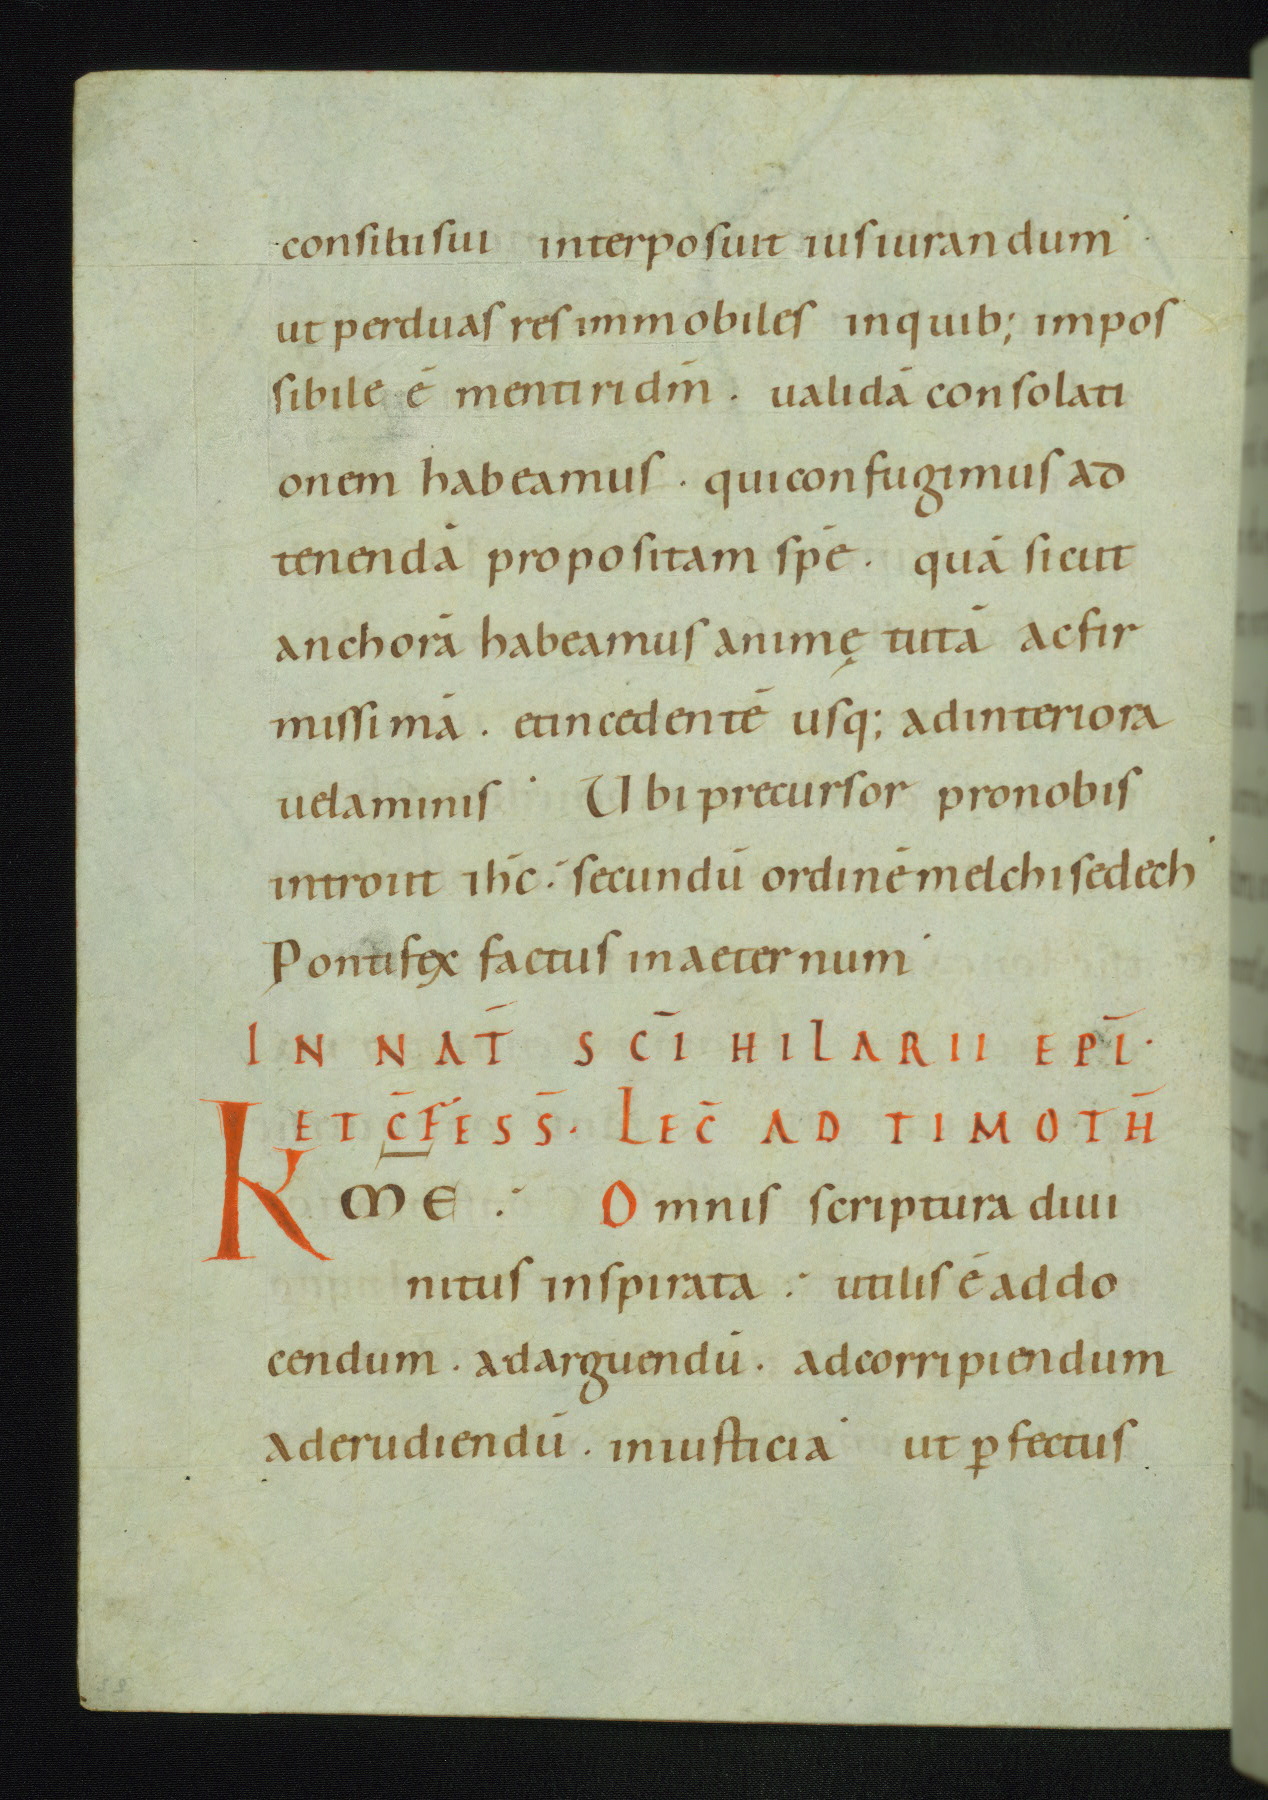 consilii sui interposuit iusiurandum
ut per duas res immobiles in quib; impos
sibile ē mentiri dm̄. ualidā consolati
onem habeamus. qui confugimus ad
tenendā propositam spē. quā sicut
anchorā habeamus animę tutā ac fir
missimā. et incedentē usq; ad interiora
uelaminis. Ubi precursor pro nobis
introiit ih̄c. secundū ordinē melchisedech
Pontifex factus in aeternum
IN NAT̄ SC̄I HILARII EPĪ.
ET C̄FESS̄. LEC̄ AD TIMOTH̄
KME: Omnis scriptura diui
nitus inspirata: utilis ē ad do
cendum. ad arguendū. ad corripiendum
ad erudiendū. in iusticia ut ꝑfectus